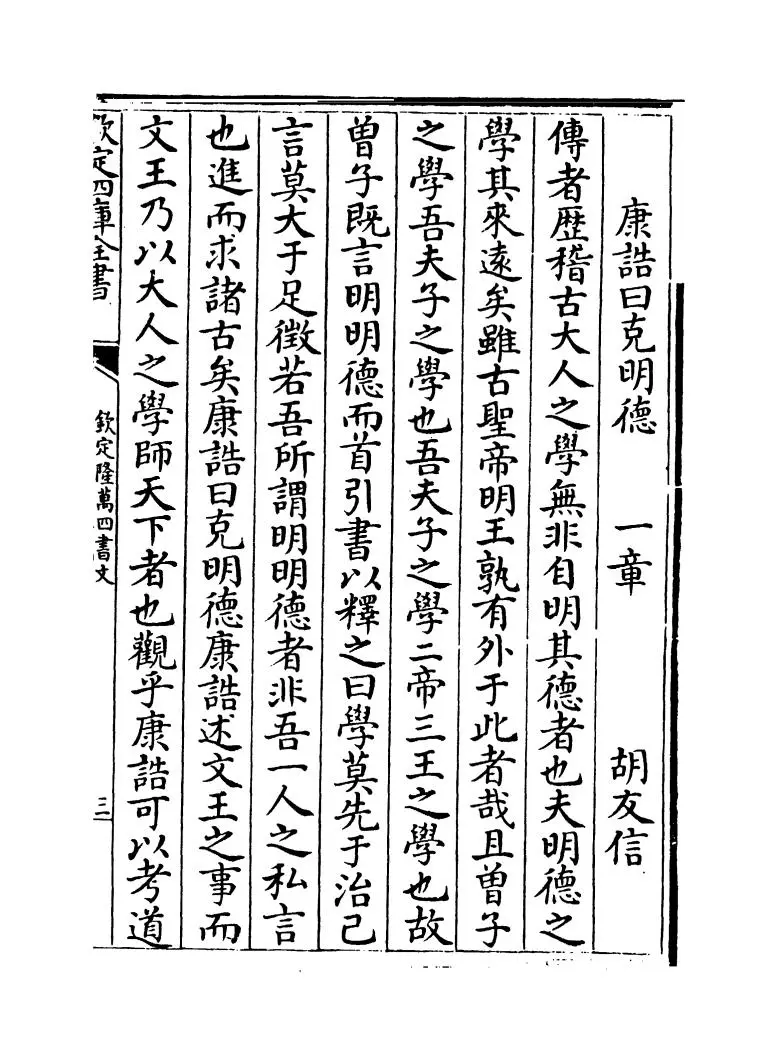 康誥曰克明德 一章 胡友信
傳者歷稽古大人之學無非自明其德者也夫明德之
學其來遠矣雖古聖帝明王孰有外于此者哉且曾子
之學吾夫子之學也吾夫子之學二帝三王之學也故
曾子既言明明德而首引書以釋之曰學莫先于治己
言莫大于足徵若吾所謂明明德者非吾一人之私言
也進而求諸古矣康誥曰克明德康誥述文王之事而
文王乃以大人之學師天下者也觀乎康誥可以考道
欽定四庫全書
欽定隆萬四書文
三